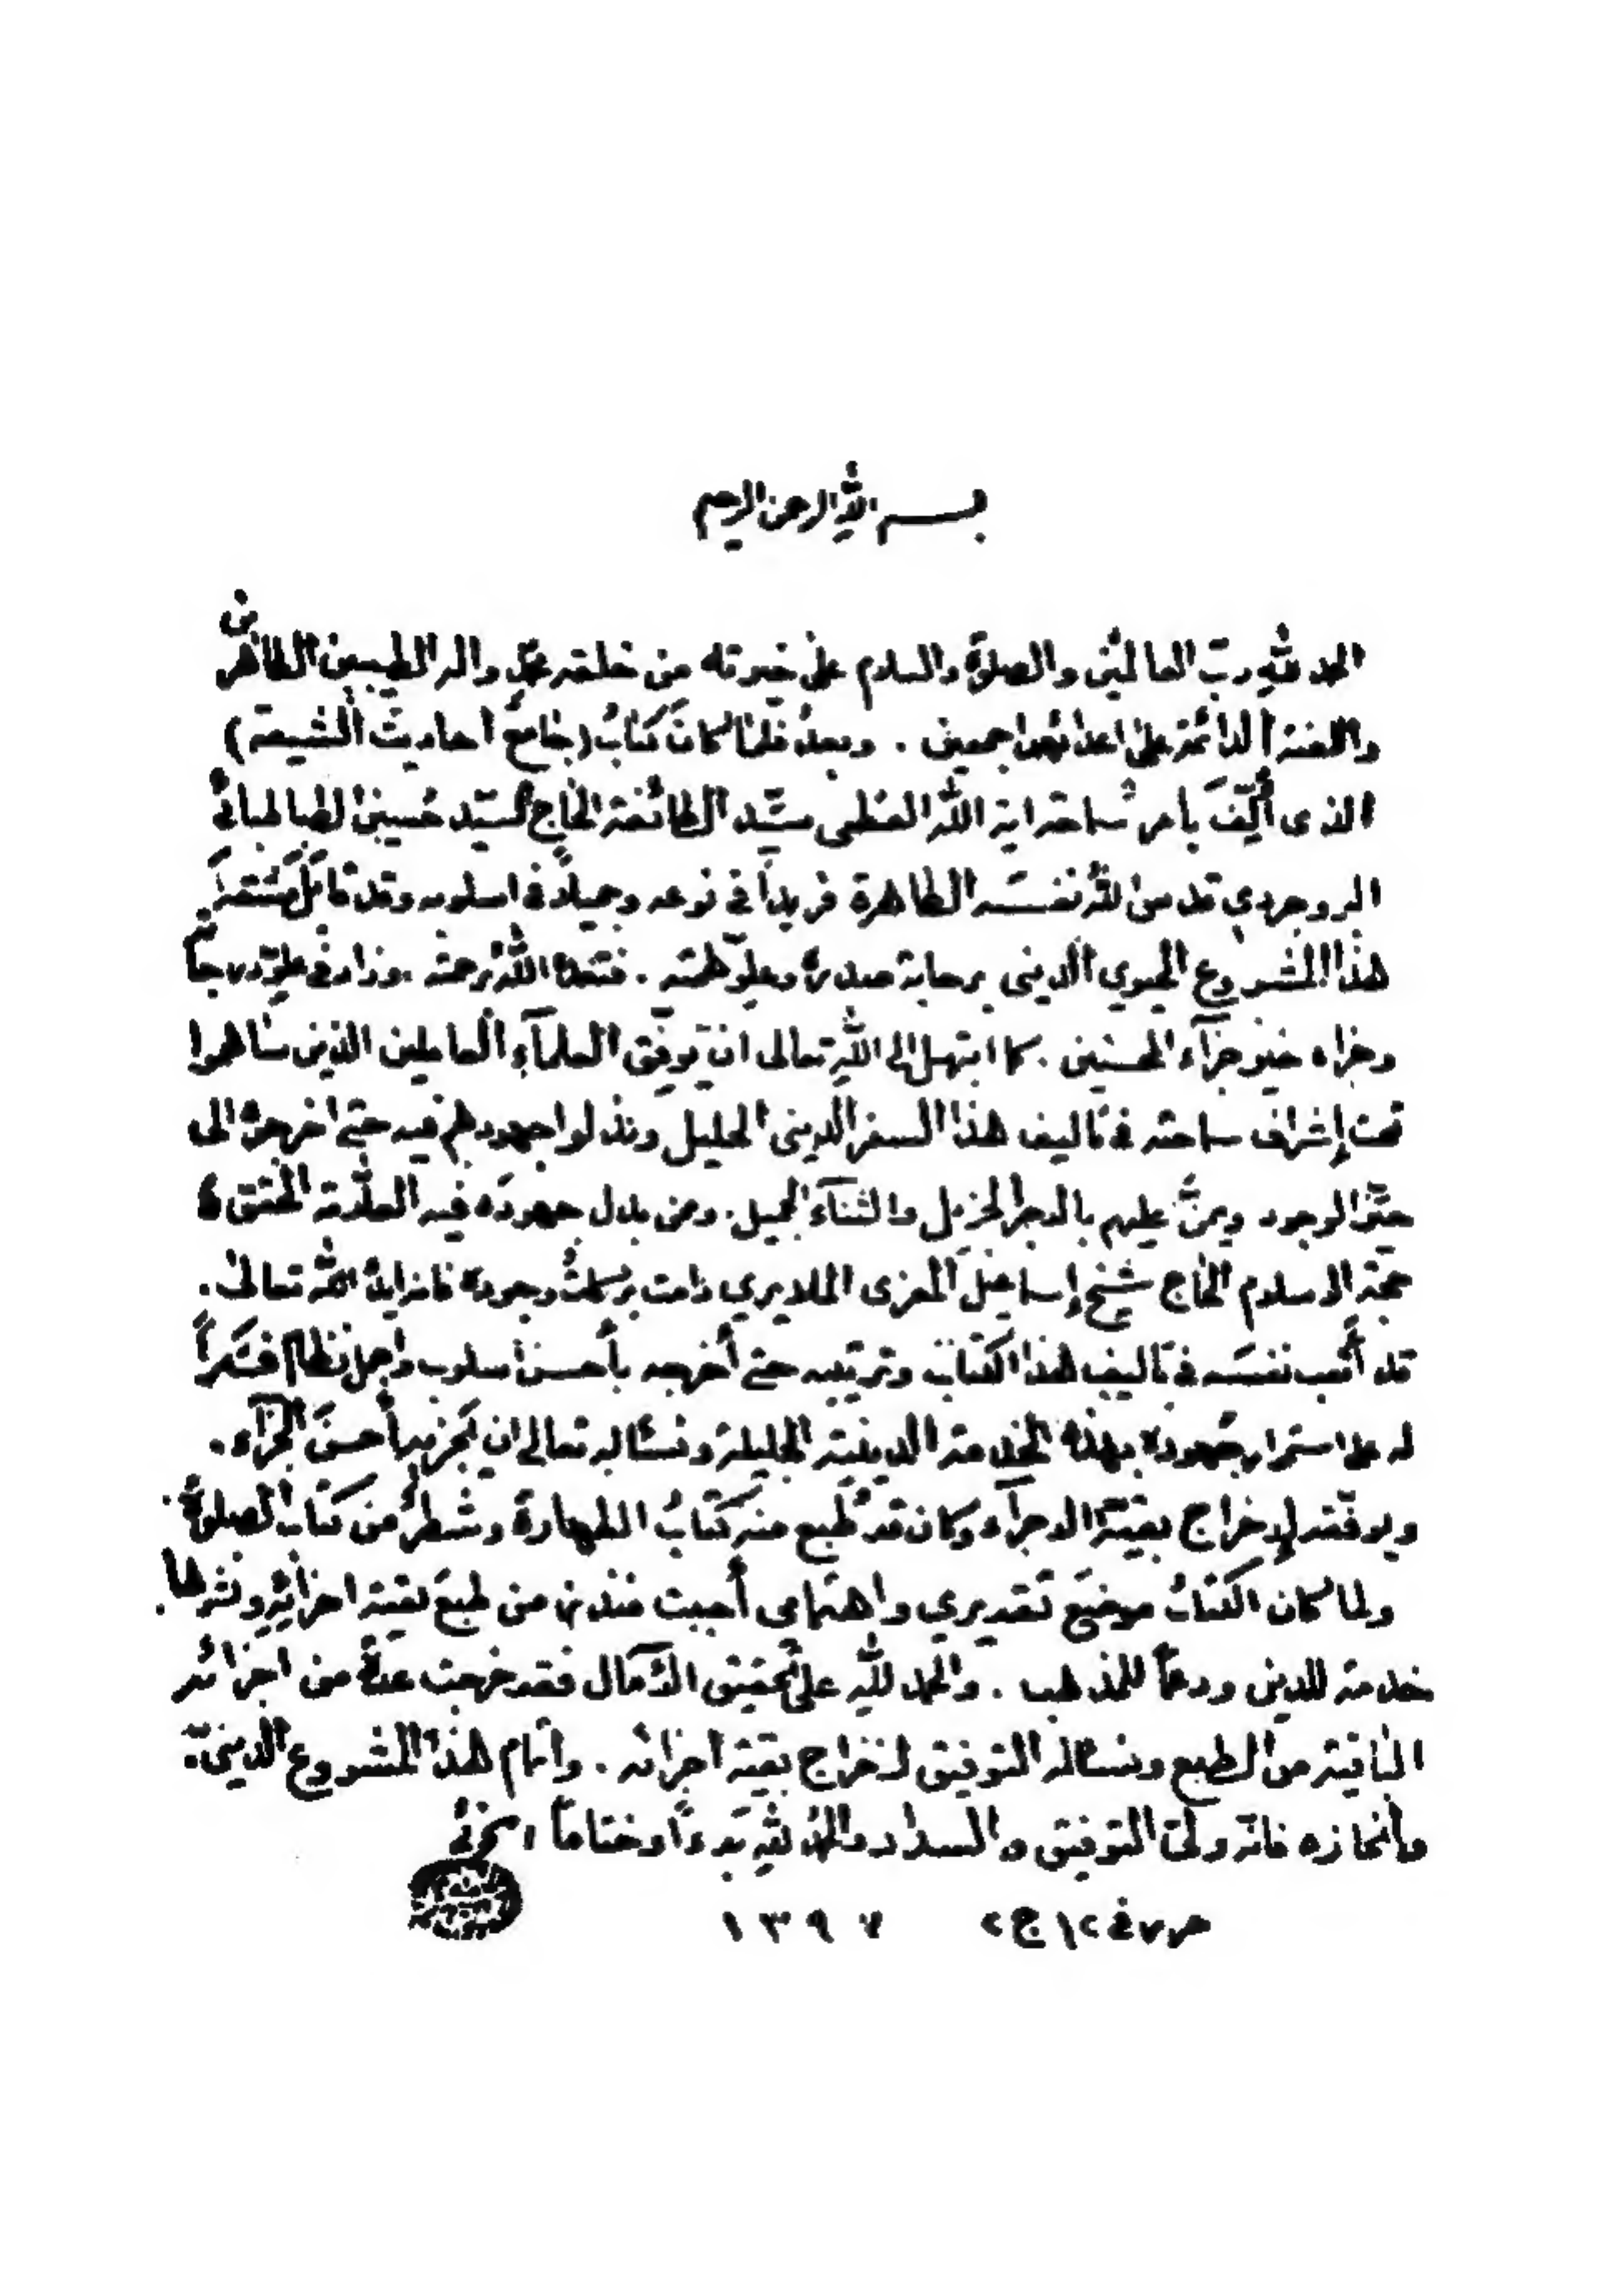 بسم الله الرحمن الرحيم
الحمد لله ربّ العالمين والصلوة والسلام على خيرته من خلقه محمّد واله الطيبين الطاهرين
واللعنة الدائمة على اعدائهم اجمعين . وبعدُ فلما كانَ كتابُ (جامع أحاديث الشيعة)
الذى أُلِّفَ بأمر سماحة اية الله العظمى سيّد الطائفة الحاج السيّد حسين الطباطبائى
البروجردي قدس الله نفسَه الطاهرة فريداً في نوعه وجميلاً فى اسلوبه وقد
هذا المشروع الحيوي الدينى برحابة صدره وعلوّ همّته . فتغمده الله برحمته وزاد فى علوّ درجاته
وجزاه خير جزآء المحسنين . كما ابتهل إلى الله تعالى ان يوفّق العلمآء العاملين الذين ساهموا
تحت إشراف سماحته فى تاليف هذا السفر الدينى الجليل وبذلوا جهودهم فيه حتى اخرجوه الى
حيّز الوجود ويمنَّ عليهم بالاجر الجزيل والثنآء الجميل . وممن بذل جهودَه فيه العلّامة المحقق
حجّة الاسلام الحاج شيخ إسماعيل المعزى الملايري دامت بركاتُ وجوده فانه ايده الله تعالى .
قد أتعب نفسَه فى تاليف هذا الكتاب وترتيبه حتى أخرجه بأحسن اسلوب واجمل نظام فشكراً
له على استمرار جهوده بهذه الخدمة الدينية الجليلة ونسئاله تعالى ان يجزيه أحسنَ الجزآء .
ويوفّقه لإخراج بقيّة الاجزآء وكان قد طُبع منه كتابُ الطهارة وشطرٌ من كتاب الصلوة .
ولما كان الكتابُ موضعَ تقديري واهتمامى أحببت طبعَ بقية اجزائه ونشرها .
خدمة للدين ودعماً للمذهب . والحمد للّه على تحقيق الآمال فقد خرجت عدة من اجزائه
الباقية من الطبع ونسئاله التوفيق لاخراج بقية اجزائه . واتمام هذا المشروع الدينىّ .
وانجازه فانه ولىّ التوفيق والسداد والحمد لله بدءاً وختاماً الخوئى
فى ١٢ ج٢ ١٣٩٧